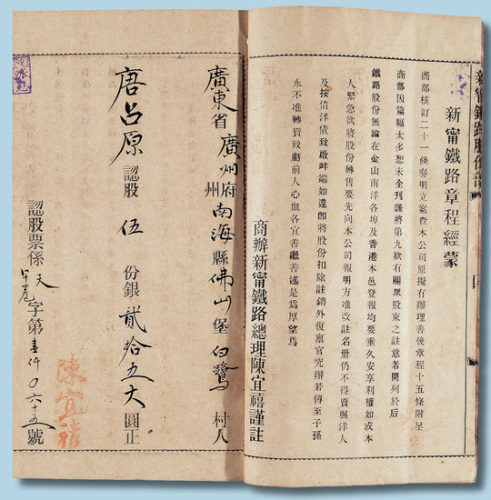 新甯鐵路章程經蒙
商部核訂二十一條奏明立案查本公司原擬有辦理善後章程十五條附呈
商部因篇幅太多恕未全列謹將第九欵有關衆股東之註意者開列於後
鐵路股份無論在金山南洋各埠及香港本邑登報均要垂久安享利權如或本
人緊急欲將股份轉售要先向本公司報明方准改註名冊仍不得賣與洋人
及按借洋債致啟衅端如違卽將股份扣除註銷外復禀官究辦若傳至子孫
永不准轉賣致前人心血各宜善繼善述是爲厚望焉
商辦新甯鐵路總理陳宜禧謹註
廣東省廣州府州南海縣佛山堡白鷺村人
唐占原認股伍份銀貳拾五大圓正
認股票係天字第壹仟0六十五號
陳宜禧